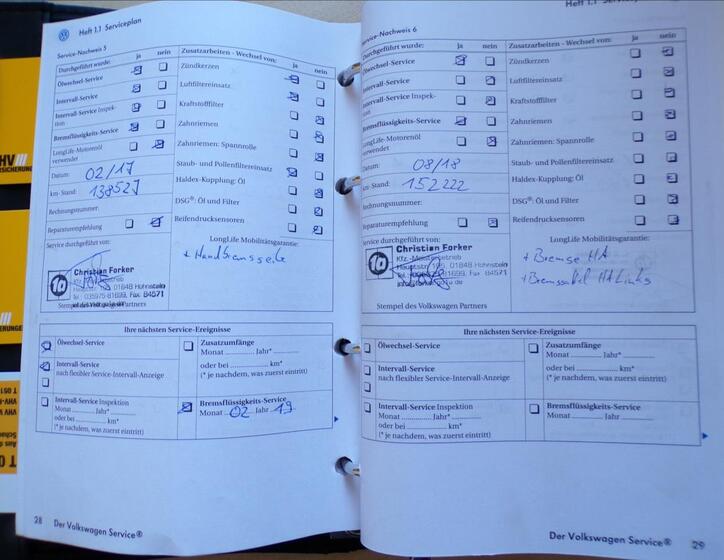 Heft 1.1 Serviceplan
Service-Nachweis 5
Durchgeführt wurde: ja nein
Ölwechsel-Service
Intervall-Service
Intervall-Service Inspek-
tion
Bremsflüssigkeits-Service
LongLife-Motorenöl
verwendet
Datum: 02/17
km-Stand: 138527
Rechnungsnummer:
Reparaturempfehlung
Service durchgeführt von:
Christian Forker
Kfz.-Meisterbetrieb
01848 Hohnstein
Tel.: 035975-81699, Fax 84571
Stempel des Volkswagen Partners
Zusatzarbeiten - Wechsel von: ja nein
Zündkerzen
Luftfiltereinsatz
Kraftstofffilter
Zahnriemen
Zahnriemen: Spannrolle
Staub- und Pollenfiltereinsatz
Haldex-Kupplung: Öl
DSG®: Öl und Filter
Reifendrucksensoren
LongLife Mobilitätsgarantie:
+ Handbremsseile
Ihre nächsten Service-Ereignisse
Ölwechsel-Service
Intervall-Service
nach flexibler Service-Intervall-Anzeige
Intervall-Service Inspektion
Monat ........... Jahr* ...........
oder bei ........... km*
(* je nachdem, was zuerst eintritt)
Zusatzumfänge
Monat ........... Jahr* ...........
oder bei ........... km*
(* je nachdem, was zuerst eintritt)
Bremsflüssigkeits-Service
Monat 02 Jahr 19
28 Der Volkswagen Service®
Heft 1.1
Service-Nachweis 6
Durchgeführt wurde: ja nein
Ölwechsel-Service
Intervall-Service
Intervall-Service Inspek-
tion
Bremsflüssigkeits-Service
LongLife-Motorenöl
verwendet
Datum: 08/18
km-Stand: 152222
Rechnungsnummer:
Reparaturempfehlung
Service durchgeführt von:
Christian Forker
Kfz.-Meisterbetrieb
Hauptstr. 105, 01848 Hohnstein
81699, Fax 84571
Stempel des Volkswagen Partners
Zusatzarbeiten - Wechsel von: ja nein
Zündkerzen
Luftfiltereinsatz
Kraftstofffilter
Zahnriemen
Zahnriemen: Spannrolle
Staub- und Pollenfiltereinsatz
Haldex-Kupplung: Öl
DSG®: Öl und Filter
Reifendrucksensoren
LongLife Mobilitätsgarantie:
+ Bremse HA
+ Bremssattel HA Links
Ihre nächsten Service-Ereignisse
Ölwechsel-Service
Intervall-Service
nach flexibler Service-Intervall-Anzeige
Intervall-Service Inspektion
Monat ........... Jahr* ...........
oder bei ........... km*
(* je nachdem, was zuerst eintritt)
Zusatzumfänge
Monat ........... Jahr* ...........
oder bei ........... km*
(* je nachdem, was zuerst eintritt)
Bremsflüssigkeits-Service
Monat ........... Jahr ...........
Der Volkswagen Service® 29